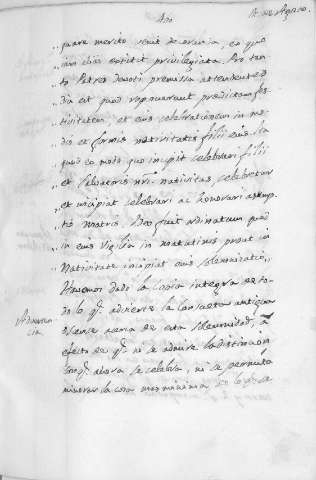 Año
A. de Agosto.
„ quare merito venit decoranda, eo quo
„ iam dies extitit privilegiata. Pro tan
„ to Patres devoti premissa attendentes
„ dia est quod reprovarunt predictam fes
„ tivitatem, et eius celebrationem in mo
„ do et formis nativitatis filii eius ita
„ quod eo modo quo incipit celebrari filii
„ et salvatoris nri. nativitas celebretur
„ et incipiat celebrari ac honorari assump
„ tio matris. Deo fuit ordinatum quod
„ in eius vigilia in matutinis prout in
„ Nativitate incipiat eius solemnitatis „
Havemos dado la copia integra de to
do lo q. advierte la Consueta antigua
Adverten
cia
de esta solemnidad, a
efecto de q. ni se admire la distincion
con q. ahora se celebra, ni se permita
minorar la cosa mas minima de lo q. se